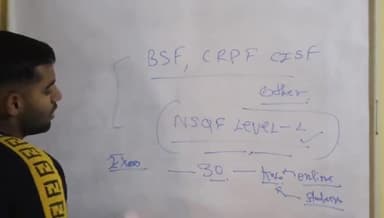 BSF, CRPF CISF
Other
NSQF LEVEL-L
Exam — 30 — online